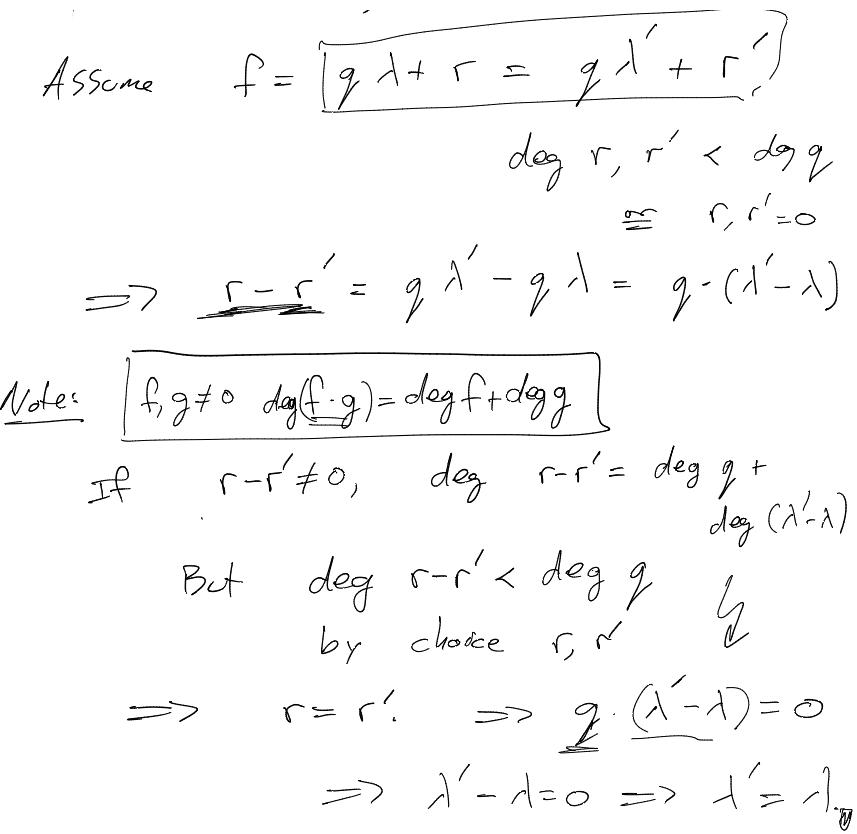 Assume f = qλ + r = qλ' + r'
deg r, r' < deg q
or r, r' = 0
=> r - r' = qλ' - qλ = q·(λ' - λ)
Note: f, g ≠ 0 deg(f·g) = deg f + deg g
If r - r' ≠ 0, deg r - r' = deg q +
deg (λ' - λ)
But deg r - r' < deg q
by choice r, r' ↯
=> r = r'. => q·(λ' - λ) = 0
=> λ' - λ = 0 => λ' = λ.